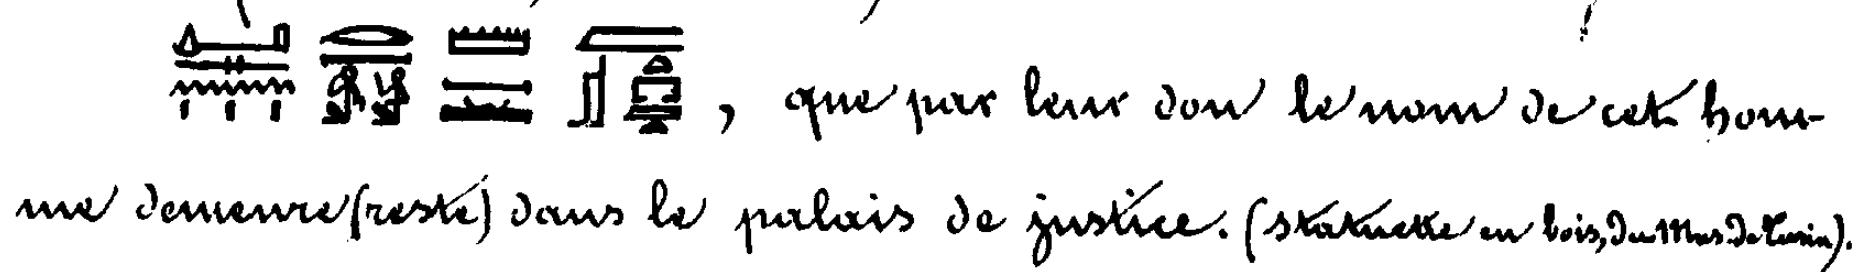 , que par leur don le nom de cet hom-
me demeure (reste) dans le palais de justice. (statuette en bois, du Mus. de Turin).